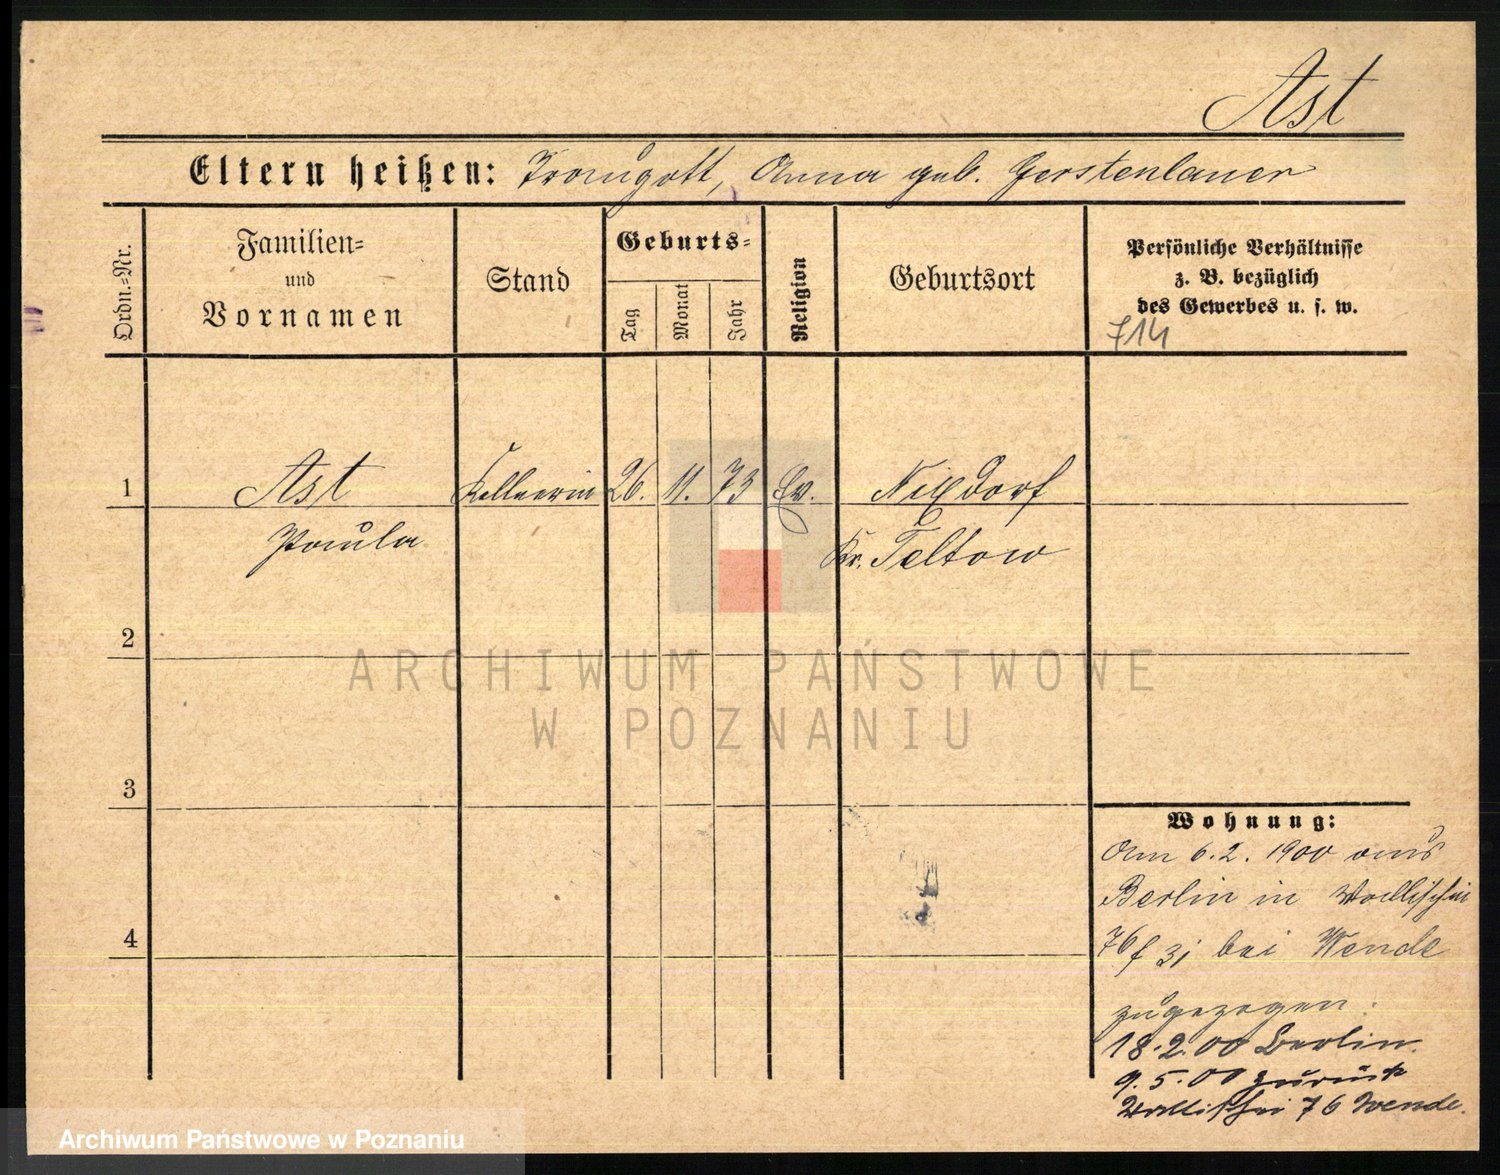 Ast
Eltern heißen: Traugott, Anna geb. Gerstenlauer
Ordn.-Nr.
Familien-
und
Vornamen
Stand
Geburts-
Tag
Monat
Jahr
Religion
Geburtsort
Persönliche Verhältnisse
z. B. bezüglich
des Gewerbes u. s. w.
714
1 Ast Kellnerin 26. 11. 73 Ev. Rixdorf
Paula Kr. Teltow
2
3
4
ARCHIWUM PAŃSTWOWE
W POZNANIU
Wohnung:
Am 6.2. 1900 aus
Berlin in Wallischei
76 bei Wende
zugezogen.
18.2.00 Berlin.
9.5.00 zurück
Wallischei 76 Wende.
Archiwum Państwowe w Poznaniu